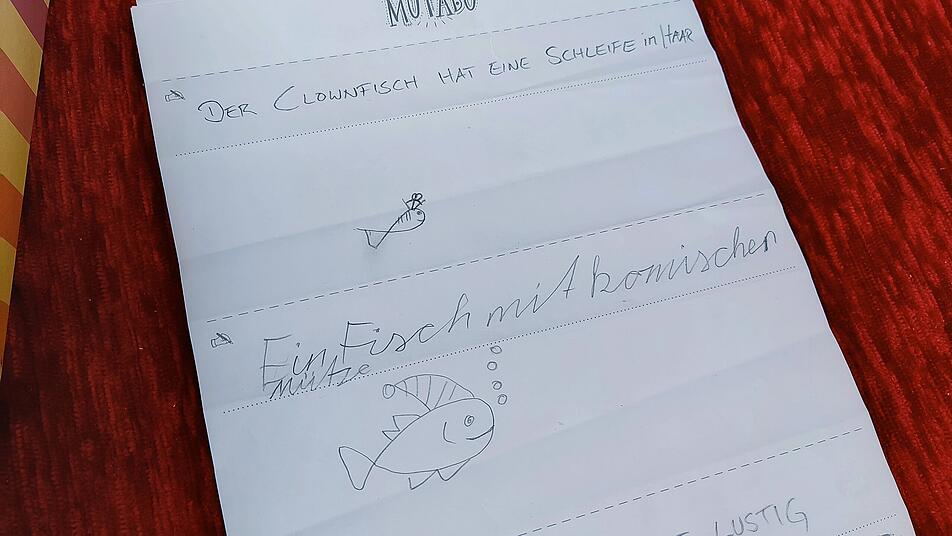 MUTABO
DER CLOWNFISCH HAT EINE SCHLEIFE im HAAR
Ein Fisch mit komischen
mütze
LUSTIG